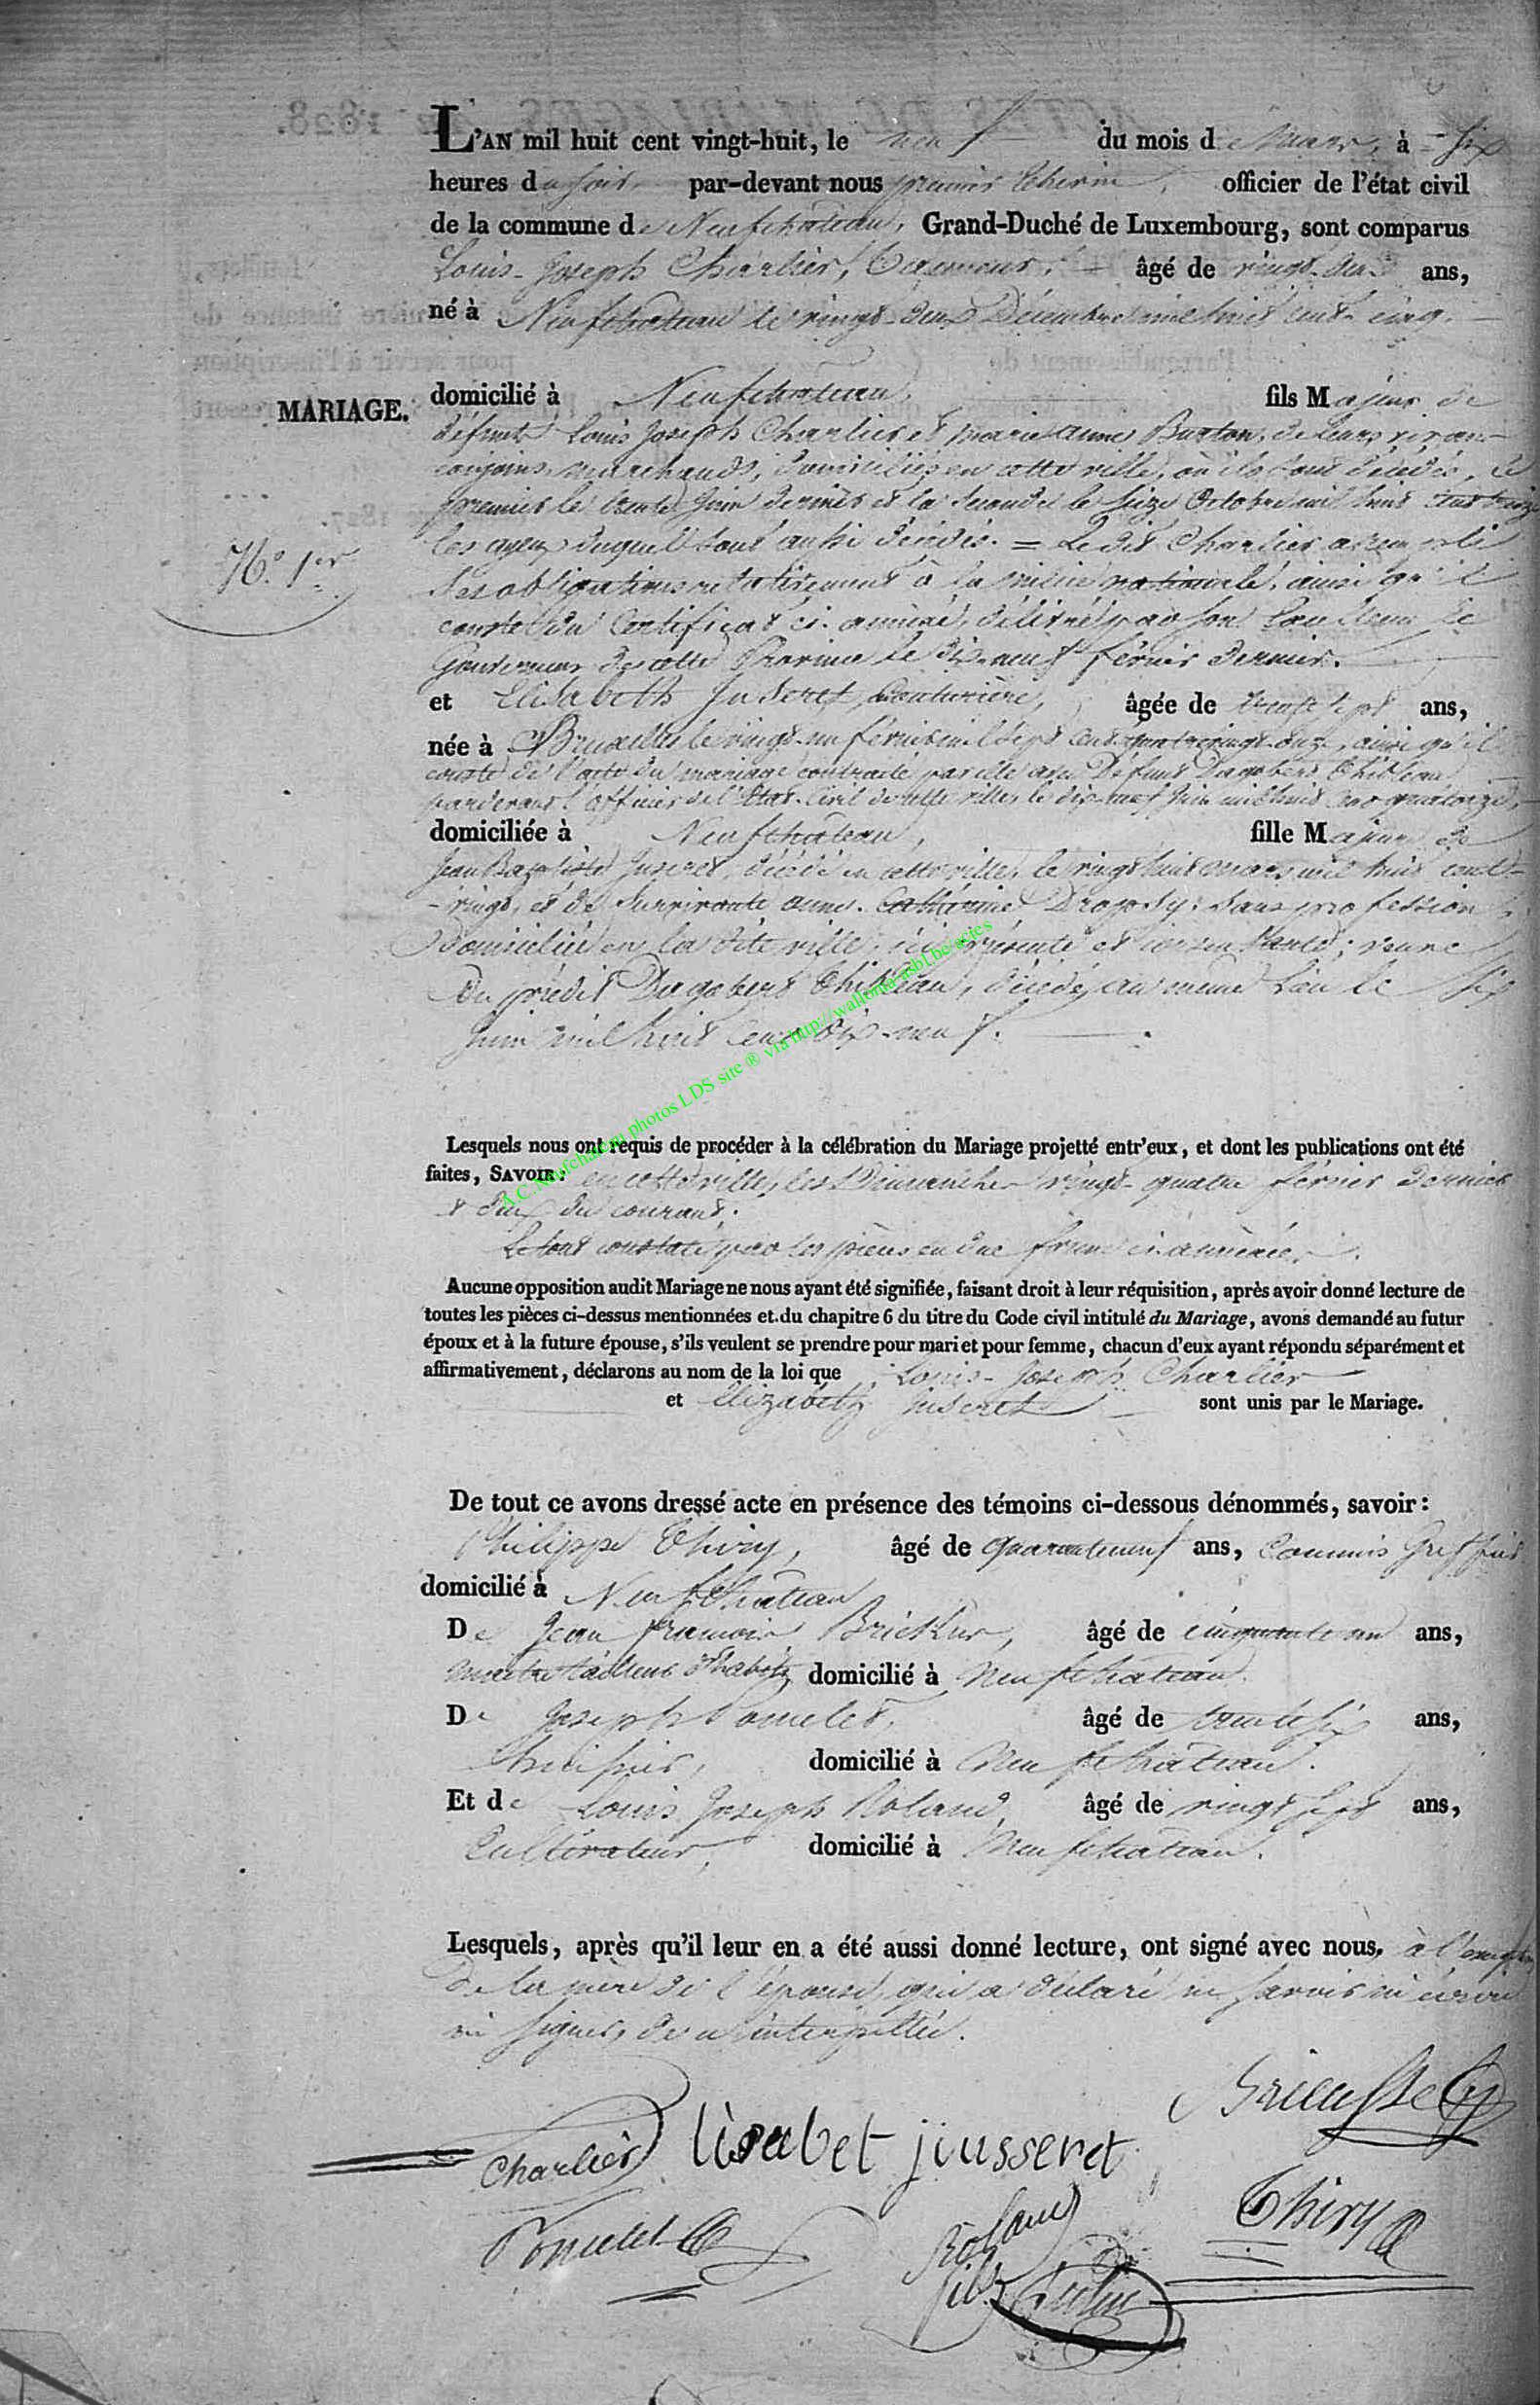 L'AN mil huit cent vingt-huit, le neuf du mois de Mars, à six
heures du soir, par-devant nous officier de l'état civil
de la commune de Neufchâteau, Grand-Duché de Luxembourg, sont comparus
Louis-Joseph Charlier, âgé de vingt-deux ans,
né à Neufchateau le vingt-deux Décembre mil huit cent cinq.
MARIAGE.
domicilié à Neufchateau, fils Majeur de
défunts Louis Joseph Charlier et Marie Anne Burton, de leurs vivans
conjoins, marchands, domiciliés en cette ville, où ils sont décédés, le
premier le trente Juin dernier et la seconde le seize Octobre mil huit cent treize
les ayeux duquel sont aussi décédés. = Le dit Charlier a rempli
N.o 1.er
ses obligations relativement à la milice nationale, ainsi qu'il
conste du Certificat ci-annexé, délivré par Son Excellence le
Gouverneur de cette Province le dix-neuf février dernier.
et Elisabeth Juseret, Couturière, âgée de trente sept ans,
née à Bruxelles le vingt-un février mil sept cent quatrevingt-onze, ainsi qu'il
conste de l'acte du mariage contracté par elle avec Défunt Dagobert Thibleau
pardevant l'officier de l'Etat-Civil de cette ville, le dix-neuf Juin mil huit cent quatorze,
domiciliée à Neufchâteau, fille Majeure de
Jean Baptiste Juseret, décédé en cette ville, le vingt huit mars mil huit cent
vingt, et de Survivante Anne-Catherine Dropsy, sans profession
domiciliée en la dite ville, ici présente et consentante; veuve
du prédit Dagobert Thibleau, décédé, au même Lieu le six
Juin mil huit cent dix-neuf.
A.C. Neufchateau photos LDS site ® via http://wallonia-asbl.be/actes
Lesquels nous ont requis de procéder à la célébration du Mariage projetté entr'eux, et dont les publications ont été
faites, SAVOIR: en cette ville, les Dimanches vingt-quatre février dernier
& deux du courant.
Le tout constaté par les pièces en due forme ci-annexées.
Aucune opposition audit Mariage ne nous ayant été signifiée, faisant droit à leur réquisition, après avoir donné lecture de
toutes les pièces ci-dessus mentionnées et du chapitre 6 du titre du Code civil intitulé du Mariage, avons demandé au futur
époux et à la future épouse, s'ils veulent se prendre pour mari et pour femme, chacun d'eux ayant répondu séparément et
affirmativement, déclarons au nom de la loi que Louis-Joseph Charlier
et Elizabeth Juseret sont unis par le Mariage.
De tout ce avons dressé acte en présence des témoins ci-dessous dénommés, savoir:
Philippe Thiry, âgé de quaranteneuf ans, Commis Greffier
domicilié à Neufchâteau
De Jean françois âgé de cinquante un ans,
maitre tailleur d'habits domicilié à Neufchateau.
De Joseph Poncelet, âgé de trente six ans,
huissier, domicilié à Neufchateau.
Et de Louis Joseph Roland, âgé de vingt sept ans,
Cultivateur, domicilié à Neufchateau.
Lesquels, après qu'il leur en a été aussi donné lecture, ont signé avec nous, à l'exception
de la mère de l'épouse, qui a déclaré ne savoir ni écrire
ni signer, de ce interpellée.
Charlier lisabet jiusseret
Poncelet Roland fils Thiry